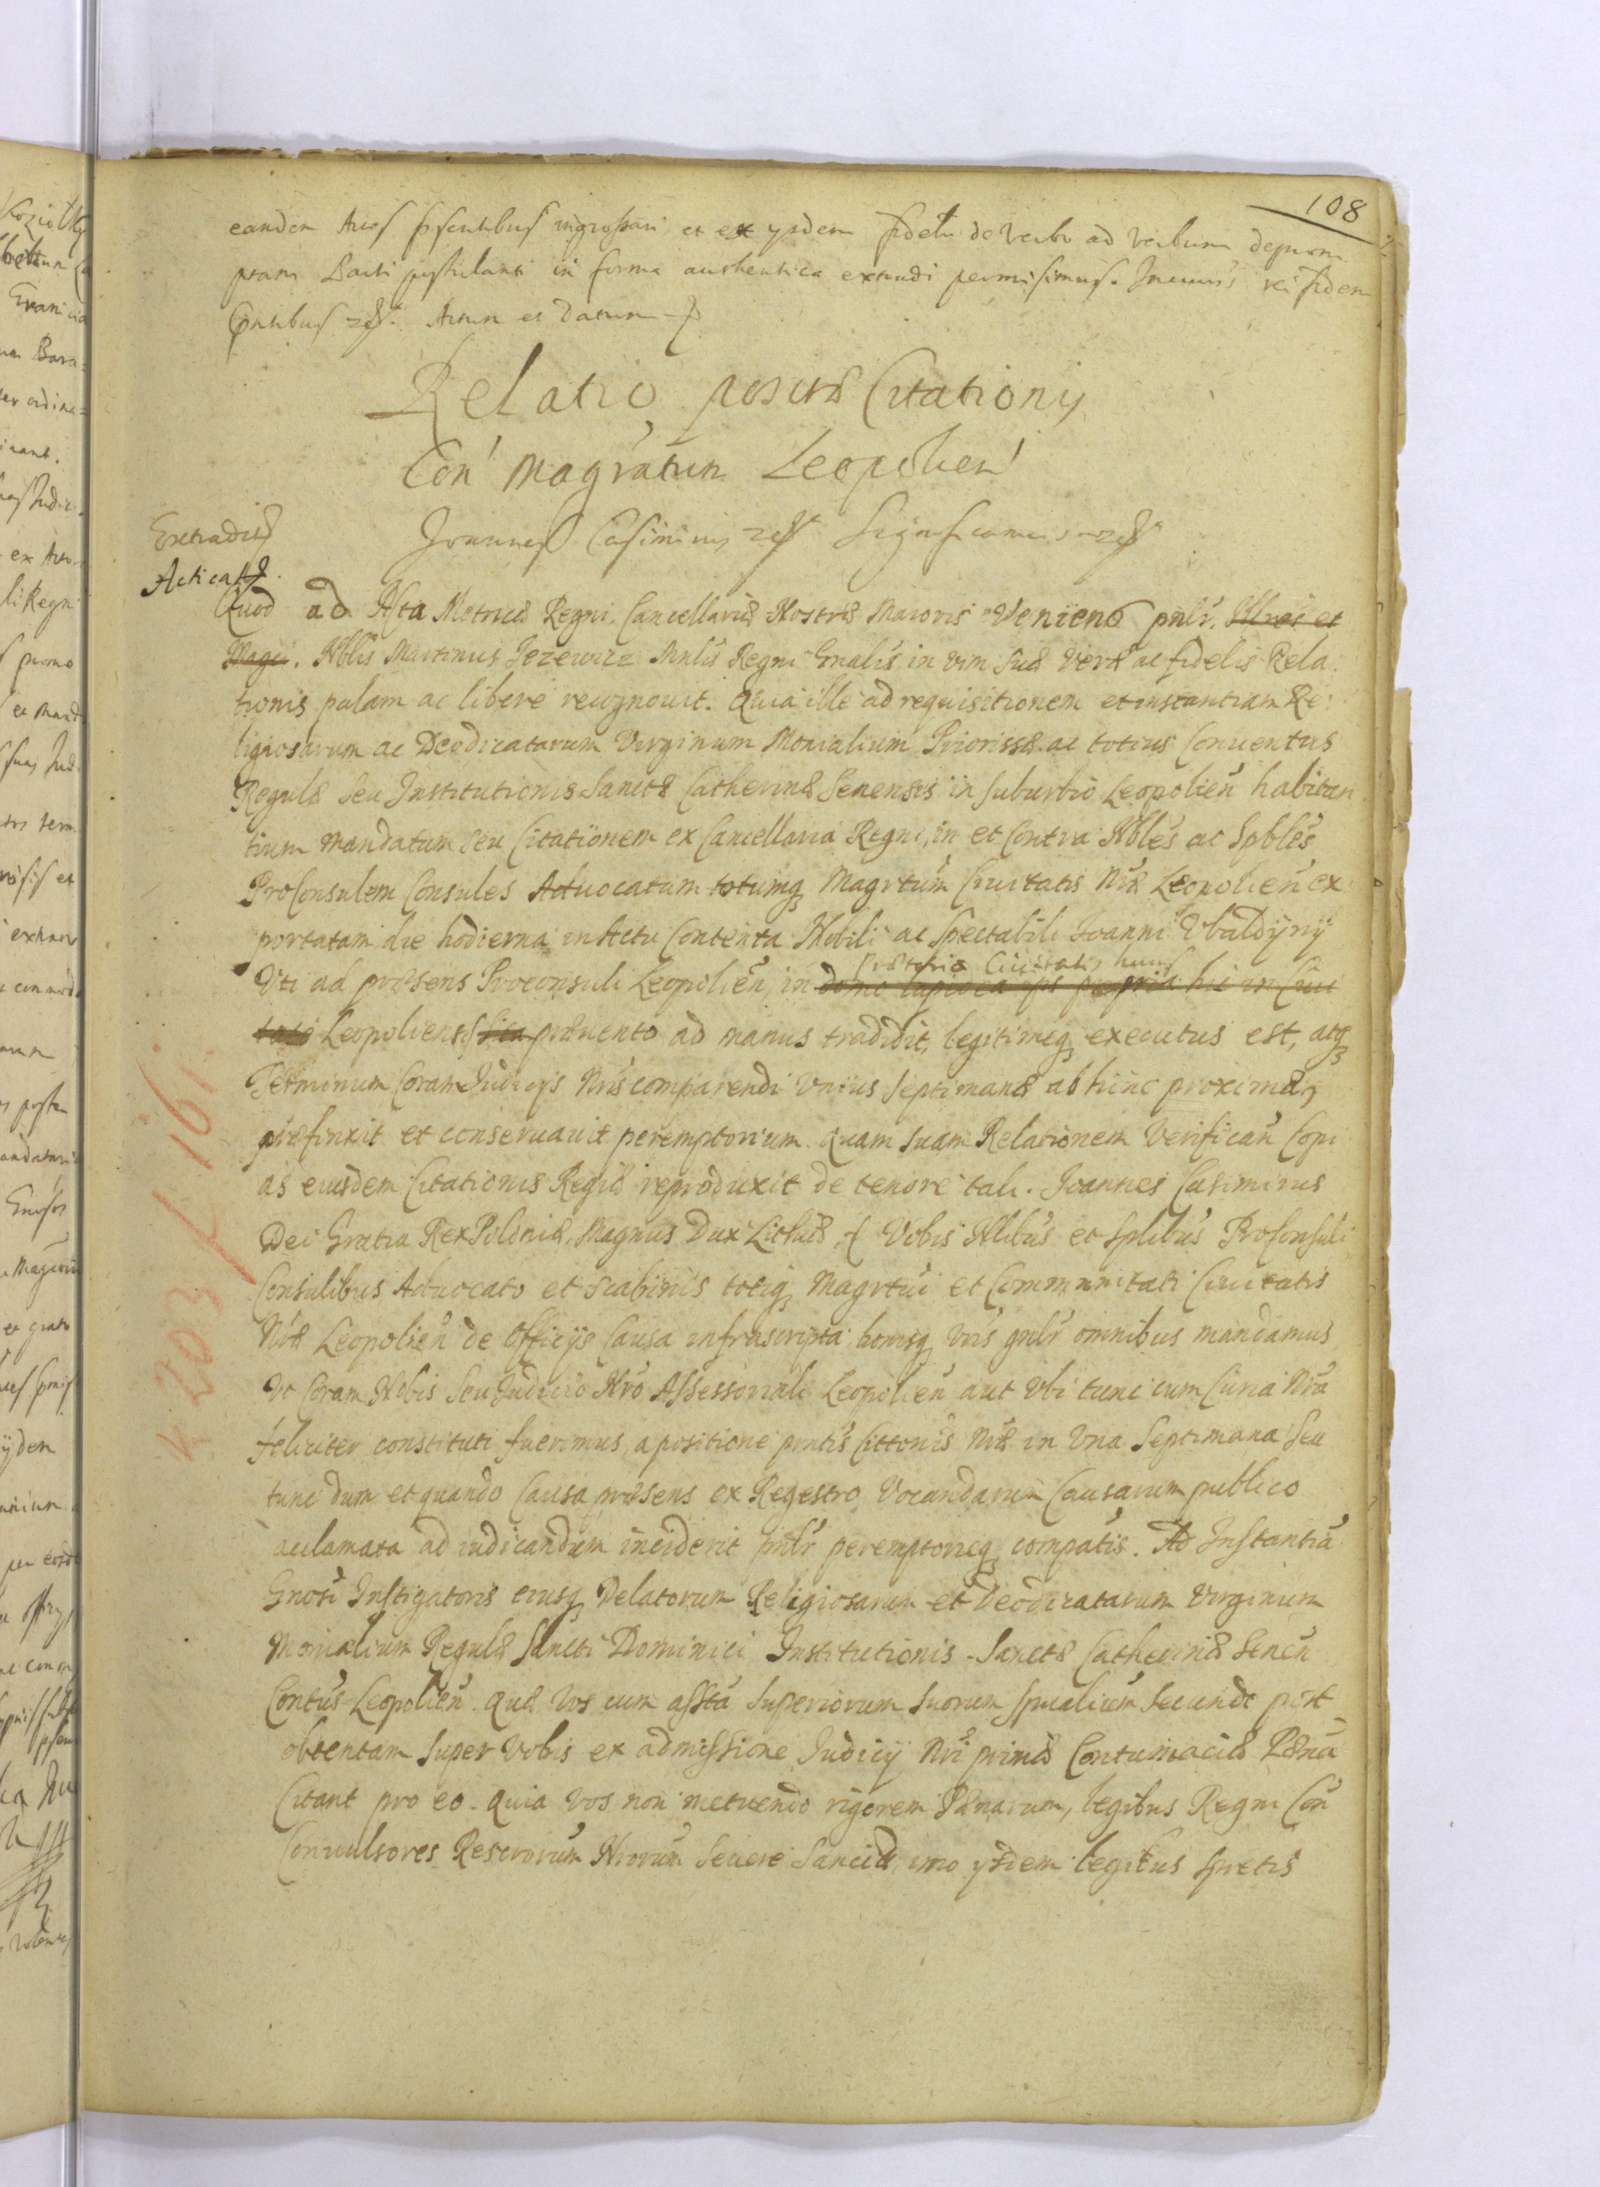 108
eandem Actis pñtibus ingrossari et ex ijsdem fideliter de verbo ad verbum deprom
ptam Parti postulanti in forma authentica extradi permisimus. In cuius rei fidem
pñtibus etc. Actum et Datum
Relatio positæ Citationis
Con' Magr̃atum Leopolien'
Joannes Casimirus etc Significamus etc
Extradit
Acticat
Quod ad Acta Metrices Regni Cancellariæ Nostræ Maioris Veniens pñlr. Illres et
Magci. Nblis Martinus Jezewicz Mnlis Regni Gnalis in vim suæ veræ ac fidelis Rela
tionis palam ac libere recognouit. Quia ille ad requisitionem et instantiam Re:
ligiosarum ac Deodicatarum Virginum Monialium Priorissæ ac totius Conuentus
Regulæ seu Institutionis Sanctæ Catherinæ Senensis in suburbio Leopolien̄ habitan
tium mandatum seu Citationem ex Cancellaria Regni, in et contra Nbles ac Spbles
ProConsulem Consules Aduocatum totumq Magrtum Ciuitatis Nræ Leopolien̄ ex
portatam die hodierna in Actu Contenta Nobili ac Spectabili Joanni Vbaldyny
Prætorio Ciuitatis huius
Vti ad præsens Proconsuli Leopolien̄ in domo lapidea ipsi propria hic in Ciui
tate Leopoliensis sita prævento ad manus tradidit, legitimeq executus est, atq
Terminum Coram Iudicijs Nris comparendi vnius septimanæ abhinc proximæ
præfinxit et conseruauit peremptorium. Quam suam Relationem Verifican̄ Copi
as eiusdem Citationis Regiæ reproduxit de tenore tali. Joannes Casimirus
Dei Gratia Rex Poloniæ, Magnus Dux Lithæ Vobis Nlibus et Splibus ProConsuli
Consulibus Aduocato et Scabinis totiq Magrtui et Communitati Ciuitatis
Nræ Leopolien̄ de Officijs Causa infrascripta bonisq vris gnlr omnibus mandamus
Vt Coram Nobis seu Iudicio Nro Assessoriali Leopolien̄ aut vbi tunc cum Curia Nra
feliciter constituti fuerimus, a positione pntis Cittonis Nræ in vna septimana seu
tunc dum et quando Causa præsens ex Regestro Vocandarum Causarum publico
acclamata ad iudicandum inciderit pnlr peremptorieq compatis. Ad Instantia
Gnosi Instigatoris eiusq Delatorum Religiosarum et Deodicatarum Virginum
Monialium Regulæ Sancti Dominici Institutionis Sanctæ Catherinæ Senen̄
Contus Leopolien̄. Quæ vos cum assta Superiorum suorum spualium secundo post
obtentam super vobis ex admissione Iudicij Nri primæ Contumaciæ Pœna
Citant pro eo. Quia vos non metuendo rigorem Pœnarum, legibus Regni Con̄
Conuulsores Rescrorum Nrorum seuere sancitæ, imo ijsdem legibus spretis
203 f 161.